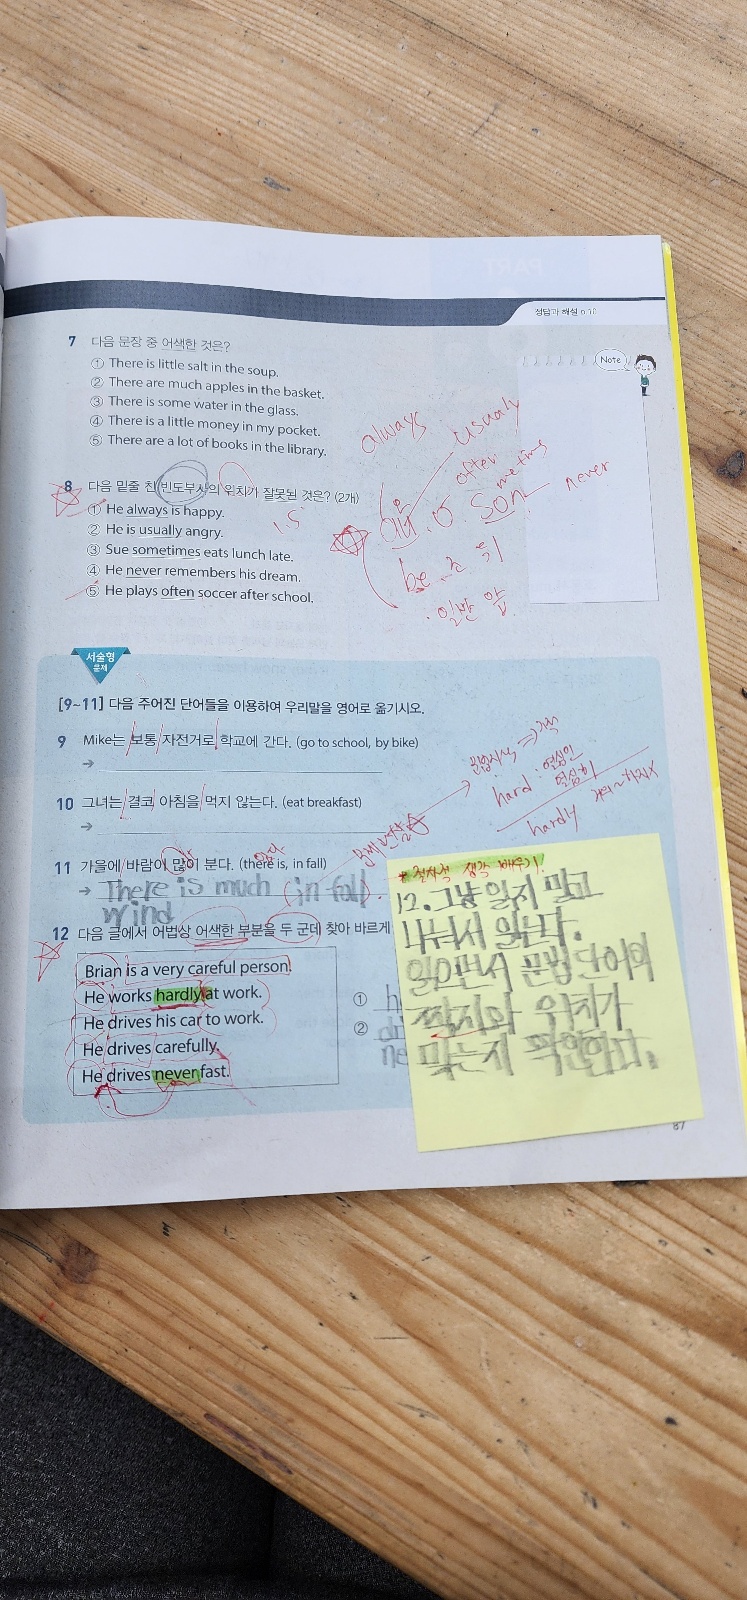 정답과 해설 p.10
Note
7 다음 문장 중 어색한 것은?
① There is little salt in the soup.
② There are much apples in the basket.
③ There is some water in the glass.
④ There is a little money in my pocket.
⑤ There are a lot of books in the library.
always usually
often
some times
never
8 다음 밑줄 친 빈도부사의 위치가 잘못된 것은? (2개)
① He always is happy.
② He is usually angry.
③ Sue sometimes eats lunch late.
④ He never remembers his dream.
⑤ He plays often soccer after school.
1.5
be 조 뒤
일반 앞
서술형
문제
[9~11] 다음 주어진 단어들을 이용하여 우리말을 영어로 옮기시오.
9 Mike는 보통 자전거로 학교에 간다. (go to school, by bike)
→
hard : 열심인
열심히
hardly 거의~하지X
10 그녀는 결코 아침을 먹지 않는다. (eat breakfast)
→
11 가을에 바람이 많이 분다. (there is, in fall)
→ There is much (in fall).
wind
12 다음 글에서 어법상 어색한 부분을 두 군데 찾아 바르게
Brian is a very careful person.
He works hardly at work.
He drives his car to work.
He drives carefully.
He drives never fast.
①
②
ne
* 절차적 생각 배우기!
12. 그냥 읽지 말고
나눠서 읽는다.
읽으면서 문법 단어의
짝지와 위치가
맞는지 확인한다.
87